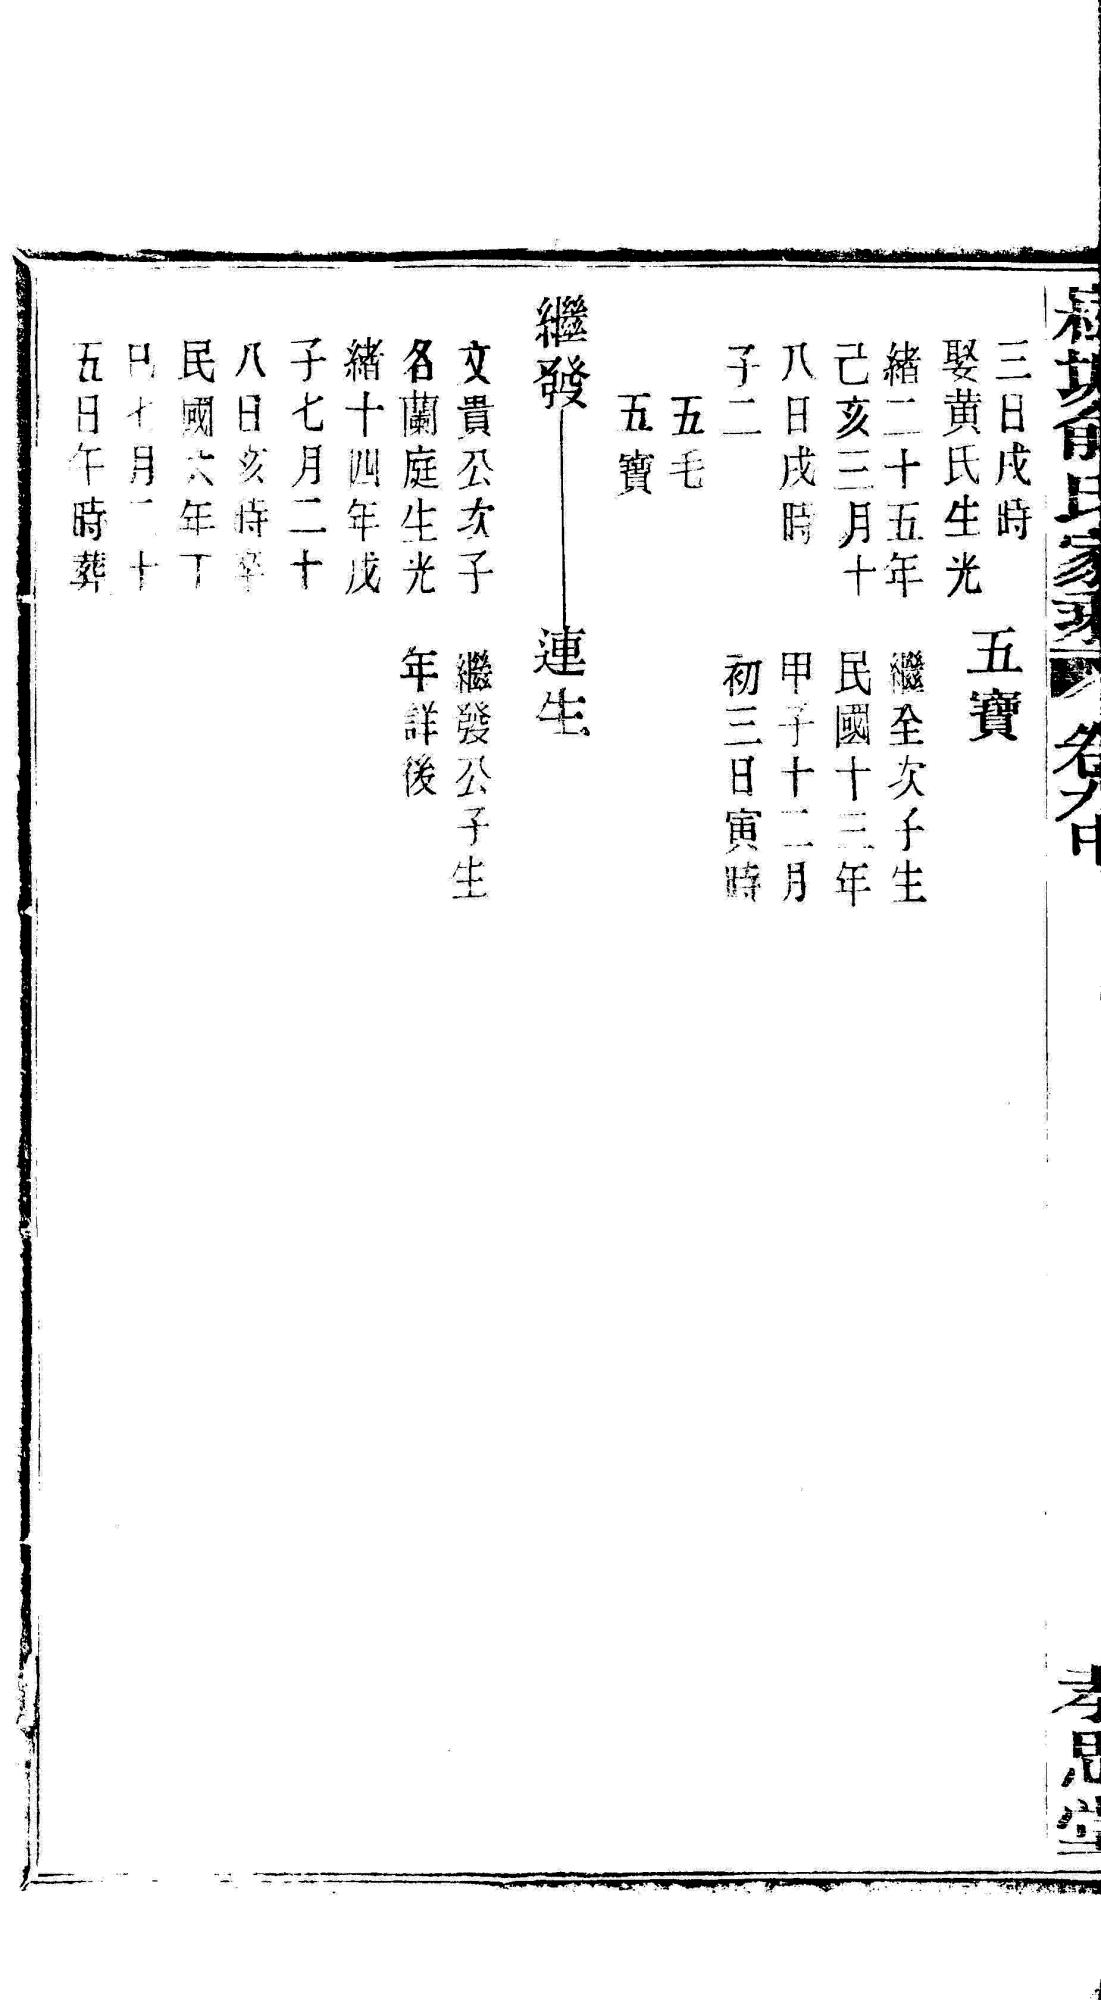 俞氏家
卷九中
孝思堂
三日戌時
娶黃氏生光
緒二十五年
己亥三月十
八日戌時
子二
五毛
五寶
五寶
繼全次子生
民國十三年
甲子十二月
初三日寅時
繼發
連生
文貴公次子
名蘭庭生光
緒十四年戊
子七月二十
八日亥時卒
民國六年丁
巳七月二十
五日午時葬
繼發公子生
年詳後